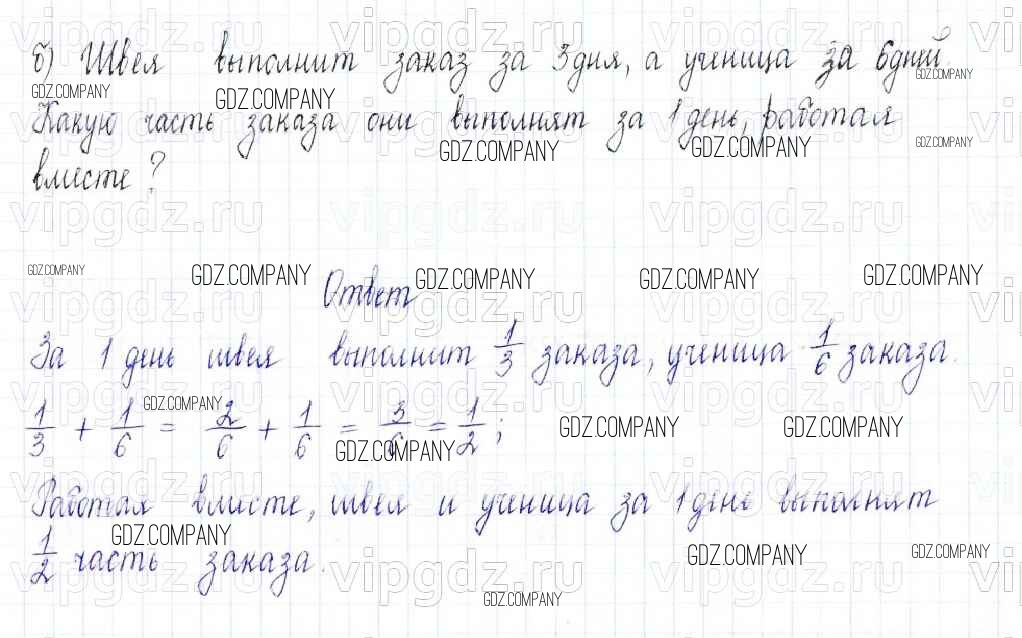 б) Швея выполнит заказ за 3 дня, а ученица за 6 дней.
Какую часть заказа они выполнят за 1 день, работая
вместе?
Ответ
За 1 день швея выполнит 1/3 заказа, ученица 1/6 заказа.
1/3 + 1/6 = 2/6 + 1/6 = 3/6 = 1/2;
Работая вместе, швея и ученица за 1 день выполнят
1/2 часть заказа.
GDZ.COMPANY
vipgdz.ru